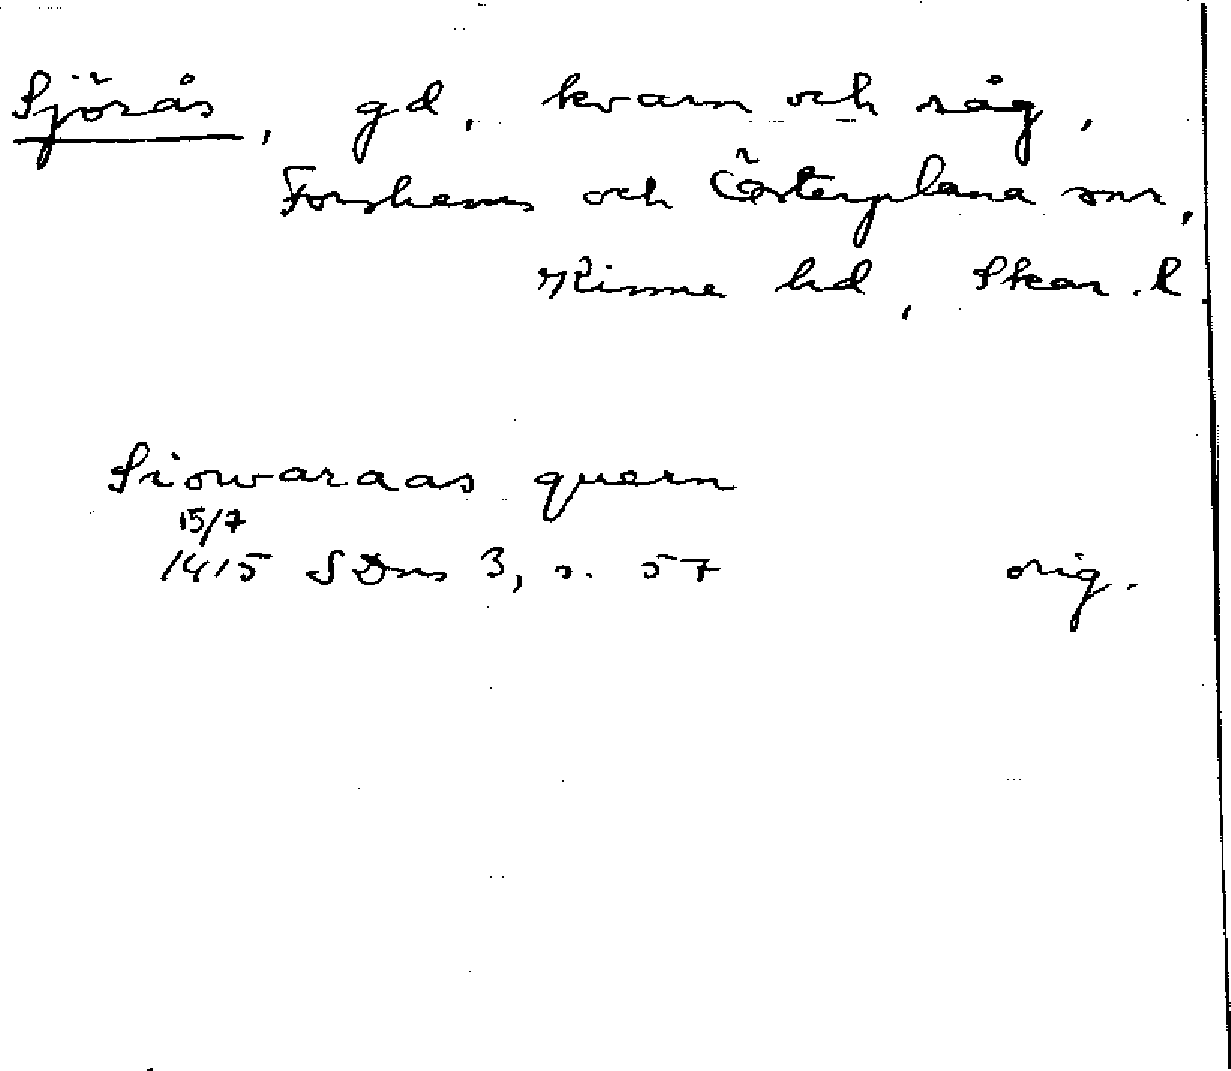 Sjörås, gd, kvarn och såg,
Forshems och Österplana snr,
Kinne hd, Skar. l
Siowaraas quern
15/7
1415 SDns 3, s. 57 orig.